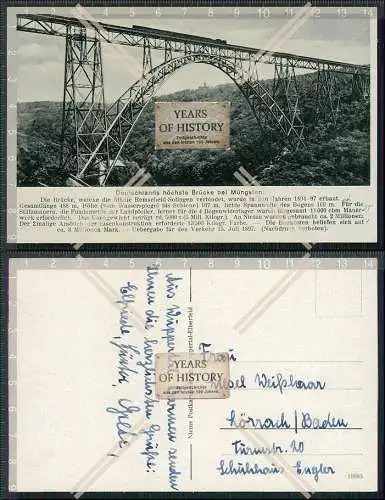 YEARS
OF HISTORY
Deutschlands höchste Brücke bei Müngsten.
Die Brücke, welche die Städte Remscheid-Solingen verbindet, wurde in den Jahren 1894-97 erbaut.
Gesamtlänge 488 m, Höhe (vom Wasserspiegel bis Schiene) 107 m, lichte Spannweite des Bogens 160 m. Für die
Stillmauern, die Fundamente der Landpfeiler, ferner für die 4 Bogenwiderlager wurden insgesamt 11 000 cbm Mauer-
werk erforderlich. Das Gesamtgewicht beträgt ca. 5000 t (5 Mill. Kilogr.). An Nieten wurden gebraucht ca. 2 Millionen.
Der Zmalige Anstrich der Eisenkonstruktion erforderte Kilogr. Farbe. — Die Baukosten beliefen sich auf
ca. 3 Millionen Mark. — Uebergabe für den Verkehr 15. Juli 1897. (Nachdruck verboten).
Aus Wuppertal-Barmen senden
Ihnen die herzlichsten Grüße:
Elfriede,
YEARS
OF HISTORY
Wuppertal-Elberfeld
Frau
Lörrach/Baden
Turmstr. 20
Schulhaus Engler